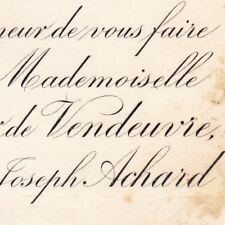 neur de vous faire
Mademoiselle
de Vendeuvre,
Joseph Achard